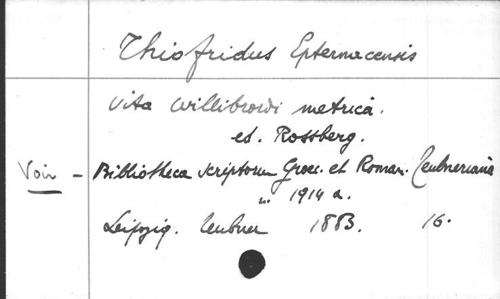 Thiofridus Epternacensis
Vita Willibrordi metrica.
ed. Rossberg.
Voir - Bibliotheca scriptorum Graec. et Roman. Teubneriana
„ 1914 a.
Leipzig. Teubner 1883. 16.